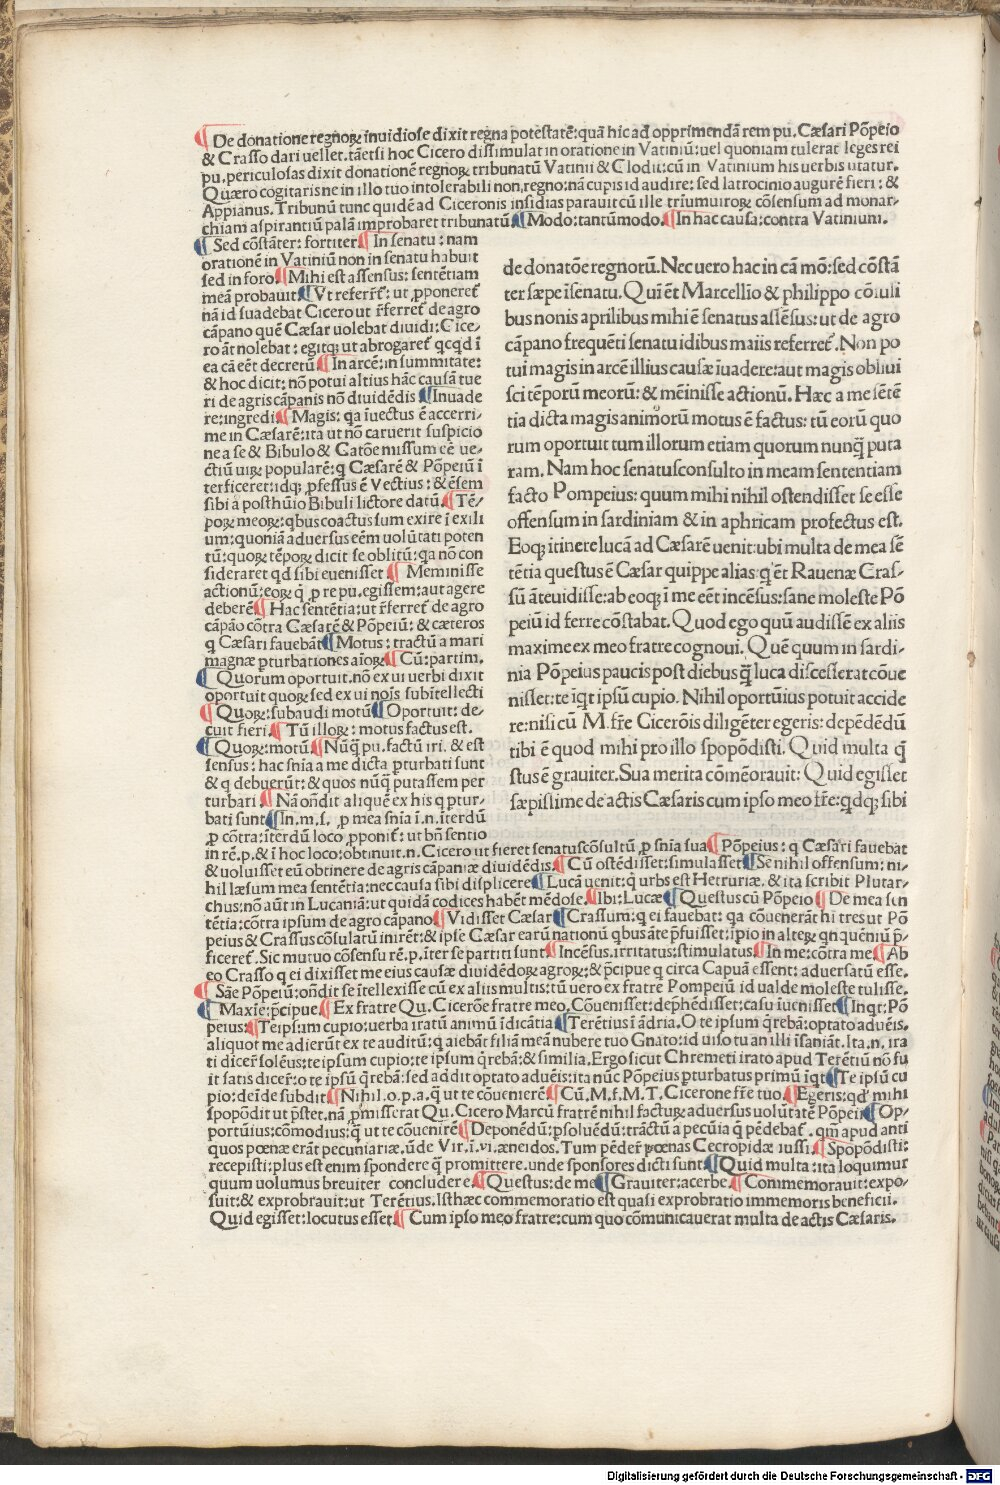 ¶ De donatione regnoꝝ inuidiose dixit regna potestatē: quā hic ad opprimendā rem pu. Cæsari Pōpeio
& Crasso dari uellet. tāetsi hoc Cicero dissimulat in oratione in Vatiniū: uel quoniam tulerat leges rei
pu. periculosas dixit donationē regnoꝝ tribunatū Vatinii & Clodii: cū in Vatinium his uerbis utatur.
Quæro cogitarisne in illo tuo intolerabili non, regno: nā cupis id audire: sed latrocinio augurē fieri: &
Appianus. Tribunū tunc quidē ad Ciceronis insidias parauit cū ille triumuiroꝝ cōsensum ad monar-
chiam aspirantiū palā improbaret tribunatū ¶ Modo: tantūmodo. ¶ In hac causa: contra Vatinium.
¶ Sed cōstāter: fortiter ¶ In senatu: nam
orationē in Vatiniū non in senatu habuit
sed in foro ¶ Mihi est assensus: sentētiam
meā probauit ¶ Vt referr̄t: ut ꝓponeret̄
nā id suadebat Cicero ut r̄ferret̄ de agro
cāpano quē Cæsar uolebat diuidi: Cice-
ro āt nolebat: egitqꝫ ut abrogaret̄ qcqd ī
ea cā eēt decretū ¶ In arcē: in summitate:
& hoc dicit: nō potui altius hāc causā tue
ri de agris cāpanis nō diuidēdis ¶ Inuade
re: ingredi ¶ Magis: qa īuectus ē acerri-
me in Cæsarē: ita ut nō caruerit suspicio
ne a se & Bibulo & Catōe missum eē ue-
ctiū uiꝝ popularē: q Cæsarē & Pōpeiū ī
terficeret: idqꝫ ꝓfessus ē Vectius: & ēsem
sibi a posthūio Bibuli lictore datū ¶ Tē-
poꝝ meoꝝ: qbus coactus sum exire ī exili
um: quoniā aduersus eēm uolūtati poten
tū: quoꝝ tēpoꝝ dicit se oblitū: qa nō con
sideraret qd sibi euenisset ¶ Meminisse
actionū: eoꝝ q̄ ꝓ re pu. egissem: aut agere
deberē ¶ Hac sentētia: ut r̄ferret̄ de agro
cāpāo cōtra Cæsarē & Pōpeiū: & cæteros
q Cæsari fauebāt ¶ Motus: tractū a mari
magnæ ꝑturbationes aīoꝝ ¶ Cū: partim.
¶ Quorum oportuit. nō ex ui uerbi dixit
oportuit quoꝝ sed ex ui nois subītellecti
¶ Quoꝝ: subaudi motū ¶ Oportuit: de-
cuit fieri. ¶ Tū illoꝝ: motus factus est.
¶ Quoꝝ: motū ¶ Nūq̄ pu. factū iri. & est
sensus: hac snīa a me dicta ꝑturbati sunt
& q debuerūt: & quos nūq̄ putassem per
turbati ¶ Nā on̄dit aliquē ex his q ꝑtur-
bati sunt ¶ In. m. s. ꝓ mea snīa ī. n. īterdū
ꝓ cōtra: īterdū loco ꝓponit̄: ut bn̄ sentio
de donatōe regnorū. Nec uero hac in cā mō: sed cōstā
ter sæpe īsenatu. Qui ēt Marcellīo & philippo cōsuli
bus nonis aprilibus mihi ē senatus assēsus: ut de agro
cāpano frequēti senatu idibus maiis referret̄. Non po
tui magis in arcē illius causæ īuadere: aut magis obliui
sci tēporū meorū: & mēinisse actionū. Hæc a me sētē
tia dicta magis animorū motus ē factus: tū eorū quo
rum oportuit tum illorum etiam quorum nunq̄ puta
ram. Nam hoc senatusconsulto in meam sententiam
facto Pompeius: quum mihi nihil ostendisset se esse
offensum in sardiniam & in aphricam profectus est.
Eoqꝫ itinere lucā ad Cæsarē uenit: ubi multa de mea sē
tētia questus ē Cæsar quippe alias: q̄ ēt Rauenæ Cras-
sū āteuidisse: ab eoqꝫ ī me eēt incēsus: sane moleste Pō
peiū id ferre cōstabat. Quod ego quū audissē ex aliis
maxime ex meo fratre cognoui. Quē quum in sardi-
nia Pōpeius paucis post diebus q̄ luca discesserat cōue
nisset: te iqt ipsū cupio. Nihil oportūius potuit accide
re: nisi cū M. fr̄e Cicerōis diligēter egeris: depēdēdū
tibi ē quod mihi pro illo spopōdisti. Quid multa q̄
stus ē grauiter. Sua merita cōmēorauit: Quid egisset
sæpissime de actis Cæsaris cum ipso meo fr̄e: qdqꝫ sibi
in rē. p. & ī hoc loco: obtinuit. n. Cicero ut fieret senatuscōsultū ꝓ snīa sua ¶ Pōpeius: q Cæsari fauebat
& uoluisset eū obtinere de agris cāpaniæ diuidēdis. ¶ Cū ostēdisset: simulasset ¶ Se nihil offensum: ni-
hil læsum mea sentētia: nec causa sibi displicere ¶ Lucā uenit: q̄ urbs est Hetruriæ. & ita scribit Plutar-
chus: nō aūt in Lucaniā: ut quidā codices habēt mēdose. ¶ Ibi: Lucæ ¶ Questus cū Pōpeio ¶ De mea sen
tētia: cōtra ipsum de agro cāpano ¶ Vidisset Cæsar ¶ Crassum: q ei fauebat: qa cōuenerāt hi tres ut Pō
peius & Crassus cōsulatū inirēt: & ipse Cæsar earū nationū qbus āte p̄fuisset: īpio in alteꝝ qnquēniū p̄-
ficeret̄. Sic mutuo cōsensu rē. p. īter se partiti sunt ¶ Incēsus. irritatus: stimulatus ¶ In me: cōtra me ¶ Ab
eo Crasso q ei dixisset me eius causæ diuidēdoꝝ agroꝝ: & p̄cipue q circa Capuā essent: aduersatū esse.
¶ Sāe Pōpeiū: on̄dit se ītellexisse cū ex aliis multis: tū uero ex fratre Pompeiū id ualde moleste tulisse.
¶ Maxīe: p̄cipue ¶ Ex fratre Qu. Cicerōe fratre meo. Cōuenisset: dephēdisset: casu īuenisset ¶ Inqt: Pō
peius: ¶ Te ipsum cupio: uerba iratū animū īdicātia ¶ Terētius ī ādria. O te ipsum q̄rebā: optato aduēis.
aliquot me adierūt ex te auditū: q aiebāt filiā meā nubere tuo Gnato: id uiso tu an illi īsaniāt. Ita. n. ira
ti dicer̄ solēus: te ipsum cupio: te ipsum q̄rebā: & similia. Ergo sicut Chremeti irato apud Terētiū nō fu
it satis dicer̄: o te ipsū q̄rebā: sed addit optato aduēis: ita nūc Pōpeius ꝑturbatus primū īqt ¶ Te ipsū cu
pio: deīde subdit ¶ Nihil. o. p. a. q̄ ut te cōuenierē ¶ Cū. M. f. M. T. Cicerone fr̄e tuo. ¶ Egeris: qd mihi
spopōdit ut p̄stet. nā ꝓmisserat Qu. Cicero Marcū fratrē nihil facturꝝ aduersus uolūtatē Pōpeii ¶ Op-
portūius: cōmodius: q̄ ut te cōuenirē ¶ Deponēdū: ꝑsoluēdū: trāctū a pecūia q̄ pēdebat̄. qm̄ apud anti
quos pœnæ erāt pecuniariæ. ūde Vir. ī. vi. æneidos. Tum pēder̄ pœnas Cecropidæ iussi. ¶ Spopōdisti:
recepisti: plus est enim spondere q̄ promittere. unde sponsores dicti sunt ¶ Quid multa: ita loquimur
quum uolumus breuiter concludere. ¶ Questus: de me ¶ Grauiter: acerbe. ¶ Commemorauit: expo-
suit: & exprobrauit: ut Terētius. Isthæc commemoratio est quasi exprobratio immemoris beneficii.
Quid egisset: locutus esset ¶ Cum ipso meo fratre: cum quo cōmunicauerat multa de actis Cæsaris.
Digitalisierung gefördert durch die Deutsche Forschungsgemeinschaft - DFG